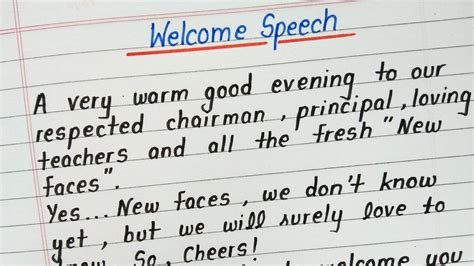 Welcome Speech
A very warm good evening to our
respected chairman, principal, loving
teachers and all the fresh "New
faces".
Yes... New faces, we don't know
yet, but we will surely love to
So, Cheers!
you